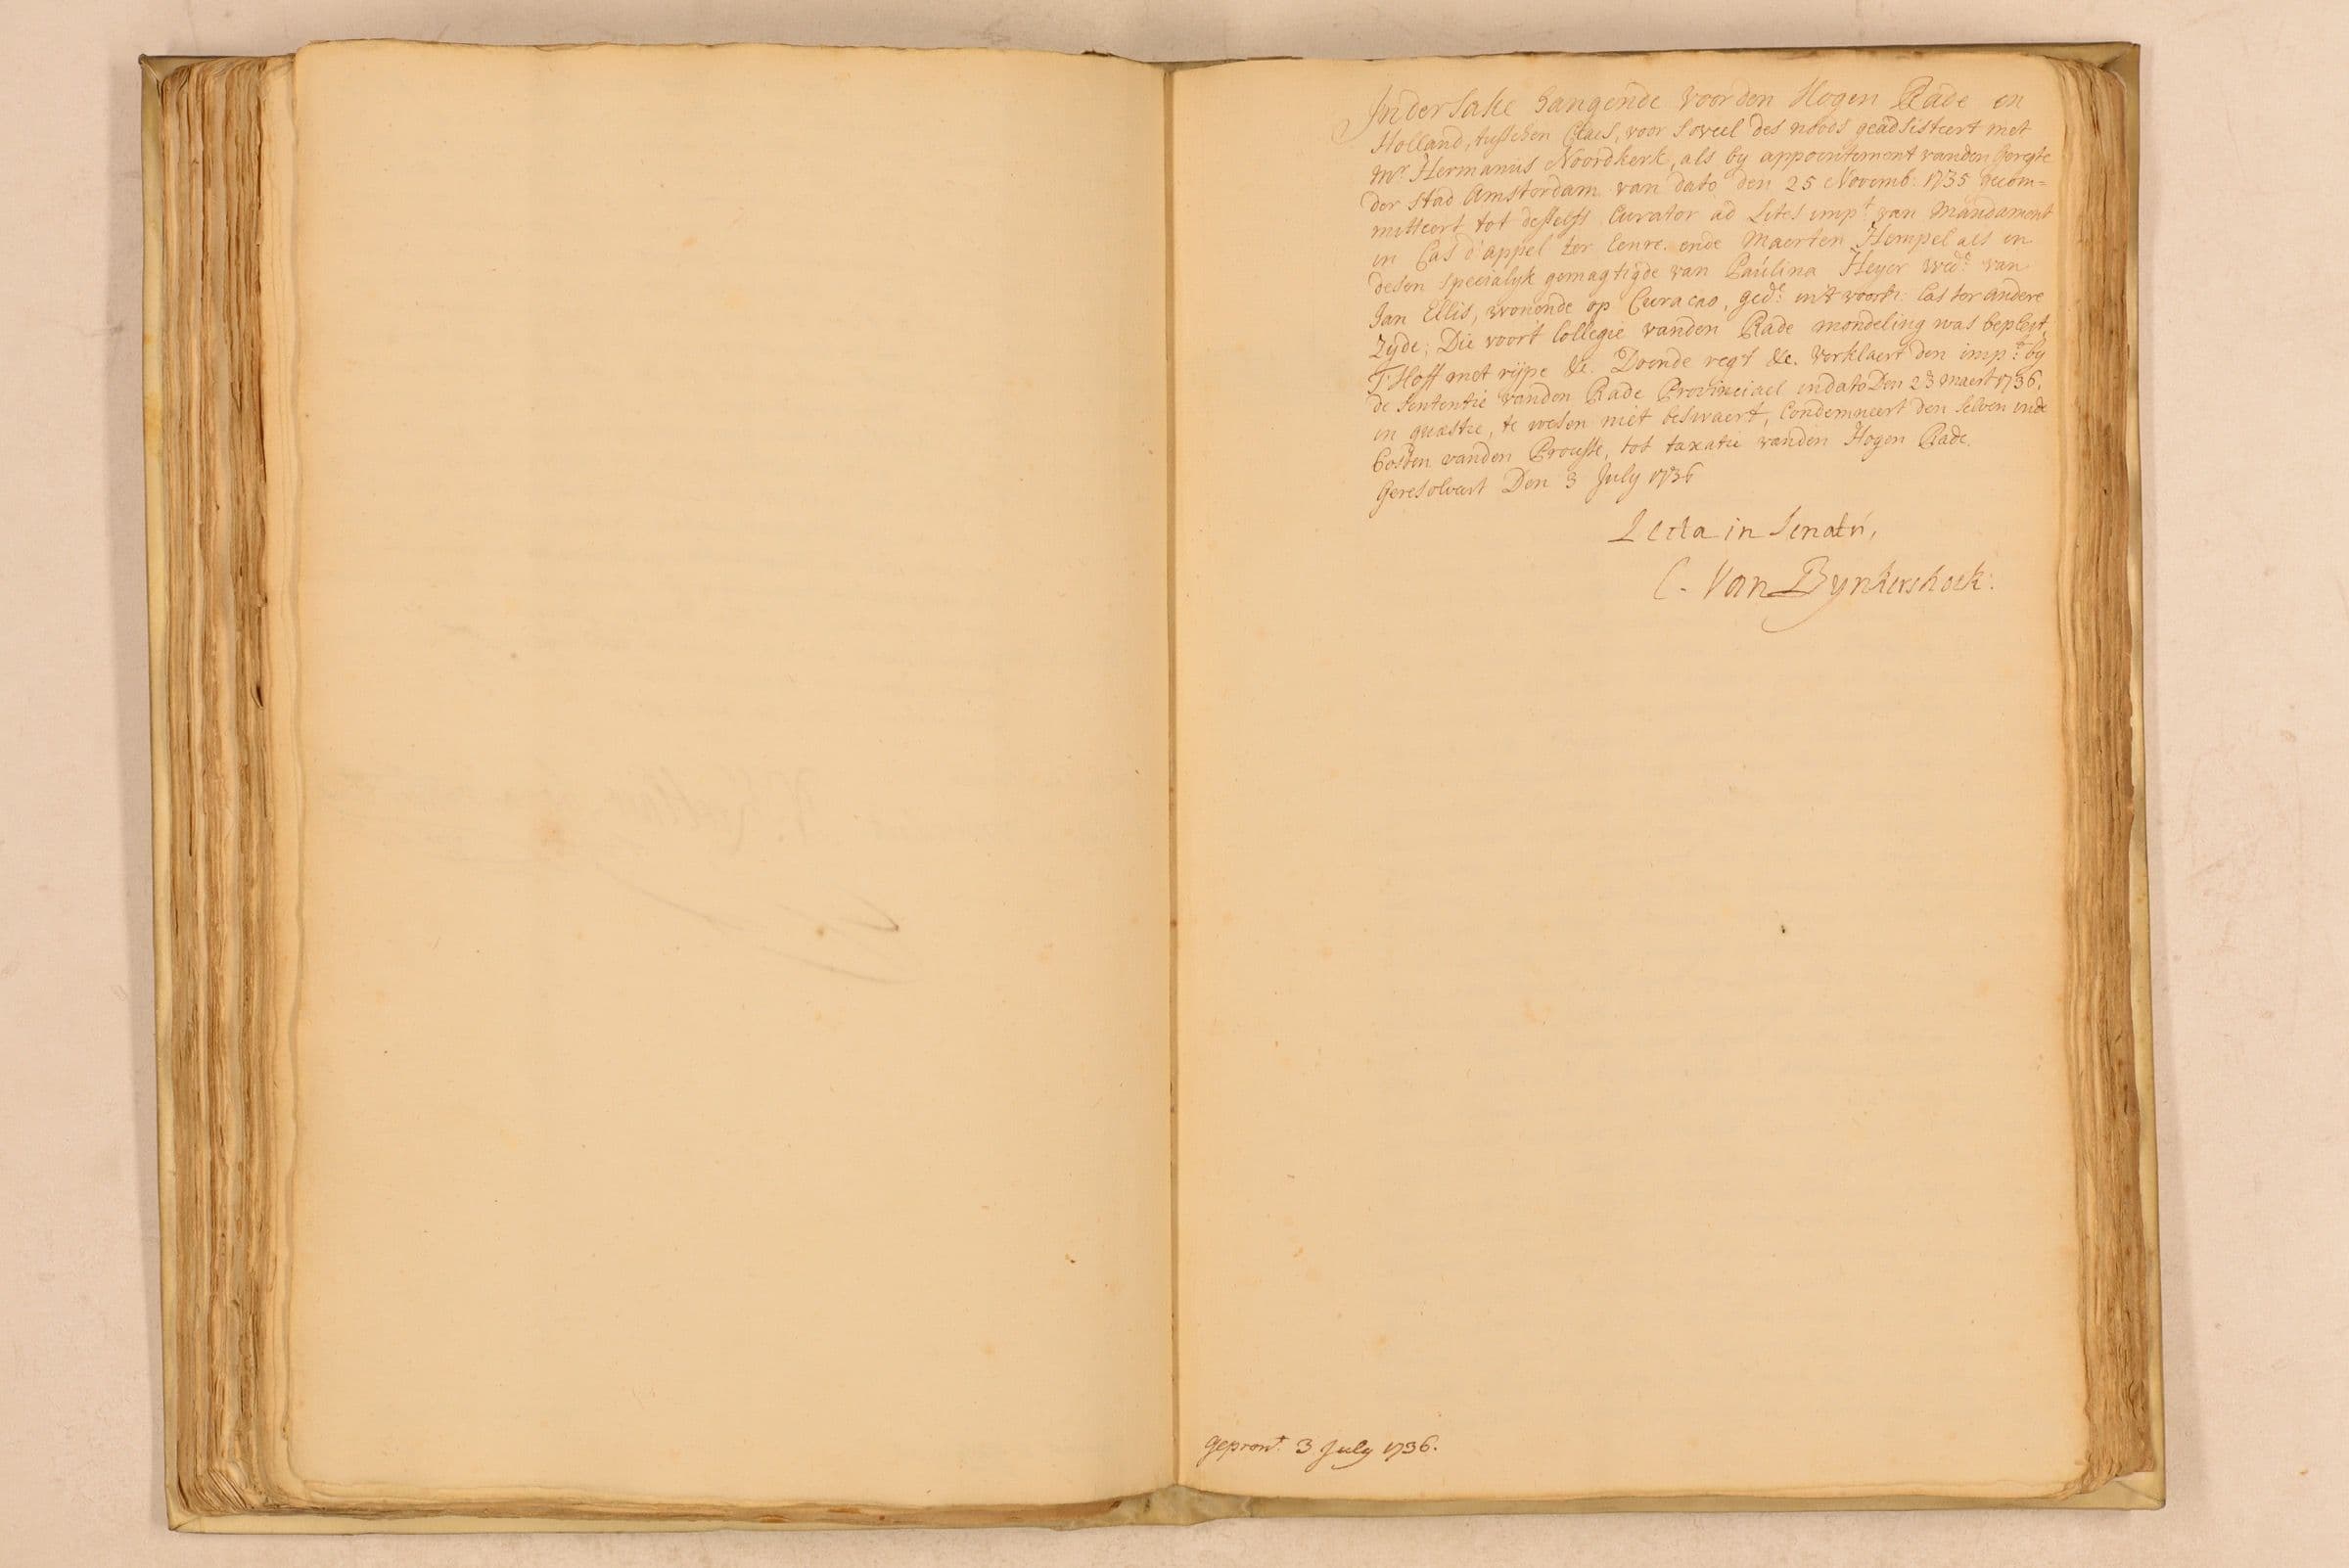 In der Sake hangende voor den Hogen Rade in
Holland, tusschen Claes, voor soveel des noods geadsisteert met
Mr. Hermanus Noordkerk, als by appointement vanden Geregte
der stad Amsterdam van dato den 25 Novemb: 1735 gecom=
mitteert tot desselfs Curator ad Lites impt. van Mandament
in Cas d'appel ter Eenre ende Maerten Hempel als in
desen specialyk gemagtigde van Paulina Heyer wede. van
Jan Ellis, wonende op Curacao, gede. in't voorsz. Cas ter andere
zyde; Die voort Collegie vanden Rade mondeling was bepleyt,
T'Hoff met rijpe &c. Doende regt &c. Verklaert den impt. by
de Sententie vanden Rade Provinciael in dato Den 23 Maert 1736,
in quæstie, te wesen niet beswaert, Condemneert den selven inde
Costen vanden Processe, tot taxatie vanden Hogen Rade.
Geresolveert Den 3 July 1736
Lecta in Senatu,
C. Van Bynkershoek.
gepront. 3 July 1736.